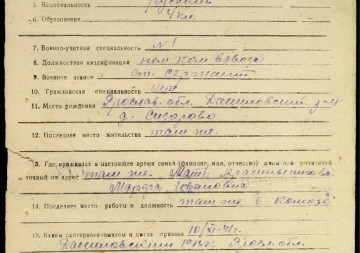 5. Национальность русский
6. Образование 4 кл.
7. Военно-учетная специальность №1
8. Должностная квалификация пом ком взвода
9. Военное звание ст. сержант
10. Гражданская специальность нет
11. Место рождения Ярослав. обл. Даниловский р-н
д.
12. Последнее место жительства там же.
3. Где проживает в настоящее время семья (фамилия, имя, отчество) жены или родителей
точный их адрес там же. Мать
Ивановна
14. Последнее место работы и должность там же в колхозе
15. Каким райвоенкоматом и когда призван 10/XI-41г.
Даниловским РВК Яросл. обл.